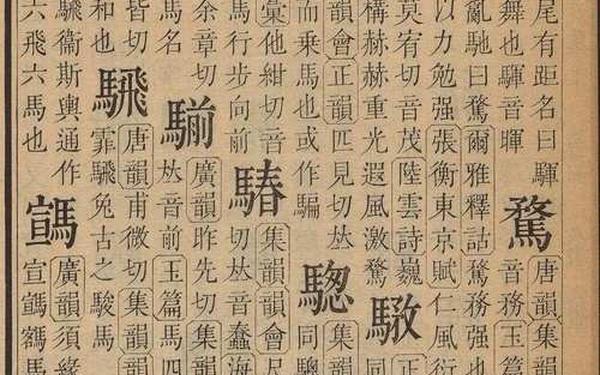 尾有距名曰䮝
舞也䮝音暉
騖
唐韻集韻
音務玉篇
亂馳曰騖爾雅釋詁騖務强也
以力勉强張衡東京賦仁風衍
莫宥切音茂陸雲詩巍
構赫赫重光遐風激騖
正
同
韻會正韻匹見切𠀤
而乘馬也或作騙
騘
集韻
同驄
彙他紺切音
馬行步向前
䮞
集韻韻會尺
切𠀤音蠢海
余章切
馬名
騚
廣韻昨先切集韻
𠀤音前玉篇馬四
皆切
和也
騛
唐韻甫微切集韻
霏騛兔古之駿馬
衞斯輿通作
六飛六馬也
廣韻須緣
宣馬